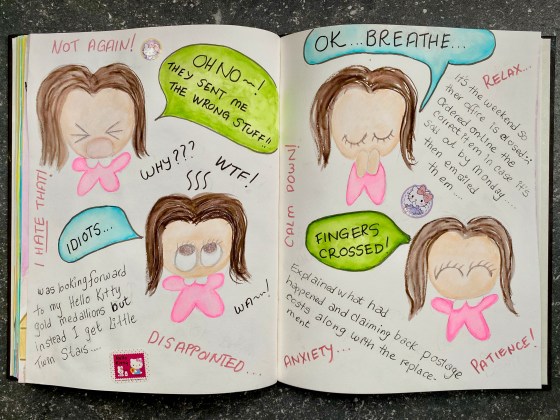 NOT AGAIN!
OH NO~~!
THEY SENT ME
THE WRONG STUFF!!
I HATE THAT!
WHY???
WTF!
IDIOTS...
was looking forward
to my Hello Kitty
gold medallions but
instead I get Little
Twin Stars....
WA~~!
DISAPPOINTED...
OK...BREATHE...
RELAX...
It's the weekend so
their office is closed:-(
Ordered online the
correct item in case it's
sold out by Monday....
then emailed
them....
CALM DOWN!
FINGERS
CROSSED!
Explained what had
happened and claiming back postage
costs along with the replace-
ment
ANXIETY...
PATIENCE!